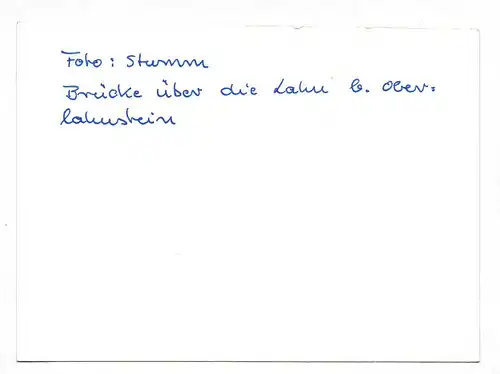 Foto: Stumm
Brücke über die Lahn b. Ober=
lahnstein